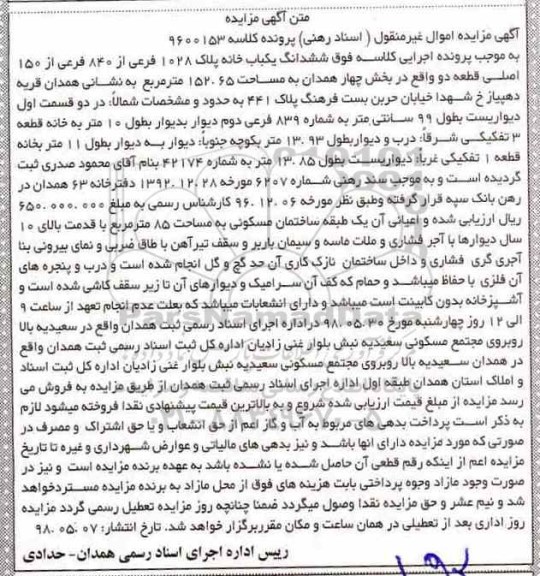 متن آگهی مزایده
آگهی مزایده اموال غیرمنقول ( اسناد رهنی) پرونده کلاسه ۹۶۰۰۱۵۳
به موجب پرونده اجرایی کلاسه فوق ششدانگ یکباب خانه پلاک ۱۰۲۸ فرعی از ۸۴۰ فرعی از ۱۵۰
اصلی قطعه دو واقع در بخش چهار همدان به مساحت ۱۵۲.۶۵ مترمربع به نشانی همدان قریه
دهپیاز خ شهدا خیابان حربن بست فرهنگ پلاک ۴۴۱ به حدود و مشخصات شمالاً: در دو قسمت اول
دیواریست بطول ۹۹ سانتی متر به شماره ۸۳۹ فرعی دوم دیوار بدیوار بطول ۱۰ متر به خانه قطعه
۳ تفکیکی شرقاً: درب و دیواربطول ۱۳.۹۳ متر بکوچه جنوباً: دیوار به دیوار بطول ۱۱ متر بخانه
قطعه ۱ تفکیکی غرباً: دیواریست بطول ۱۳.۸۵ متر به شماره ۴۲۱۷۴ بنام آقای محمود صدری ثبت
گردیده است و به موجب سند رهنی شماره ۶۲۰۷ مورخه ۱۳۹۲.۱۲.۲۸ دفترخانه ۶۳ همدان در
رهن بانک سپه قرار گرفته وطبق نظر مورخه ۹۶.۱۲.۰۶ کارشناس رسمی به مبلغ ۶۵۰.۰۰۰.۰۰۰
ریال ارزیابی شده و اعیانی آن یک طبقه ساختمان مسکونی به مساحت ۸۵ مترمربع با قدمت بالای ۱۰
سال دیوارها با آجر فشاری و ملات ماسه و سیمان باربر و سقف تیرآهن با طاق ضربی و نمای بیرونی بنا
آجری گری فشاری و داخل ساختمان نازک کاری آن حد گچ و گل انجام شده است و درب و پنجره های
آن فلزی با حفاظ میباشد و حمام که کف آن سرامیک و دیوارهای آن تا زیر سقف کاشی شده است و
آشپزخانه بدون کابینت است میباشد و دارای انشعابات میباشد که بعلت عدم انجام تعهد از ساعت ۹
الی ۱۲ روز چهارشنبه مورخ ۹۸.۰۵.۳۰ دراداره اجرای اسناد رسمی ثبت همدان واقع در سعیدیه بالا
روبروی مجتمع مسکونی سعیدیه نبش بلوار غنی زادیان اداره کل ثبت اسناد رسمی ثبت همدان واقع
در همدان سعیدیه بالا روبروی مجتمع مسکونی سعیدیه نبش بلوار غنی زادیان اداره کل ثبت اسناد
و املاک استان همدان طبقه اول اداره اجرای اسناد رسمی ثبت همدان از طریق مزایده به فروش می
رسد مزایده از مبلغ قیمت ارزیابی شده شروع و به بالاترین قیمت پیشنهادی نقدا فروخته میشود لازم
به ذکر است پرداخت بدهی های مربوط به آب و گاز اعم از حق انشعاب و یا حق اشتراک و مصرف در
صورتی که مورد مزایده دارای انها باشد و نیز بدهی های مالیاتی و عوارض شهرداری و غیره تا تاریخ
مزایده اعم از اینکه رقم قطعی آن حاصل شده یا نشده باشد به عهده برنده مزایده است و نیز در
صورت وجود مازاد وجوه پرداختی بابت هزینه های فوق از محل مازاد به برنده مزایده مستردخواهد
شد و نیم عشر و حق مزایده نقدا وصول میگردد ضمنا چنانچه روز مزایده تعطیل رسمی گردد مزایده
روز اداری بعد از تعطیلی در همان ساعت و مکان مقرربرگزار خواهد شد. تاریخ انتشار: ۹۸.۰۵.۰۷
رییس اداره اجرای اسناد رسمی همدان- حدادی